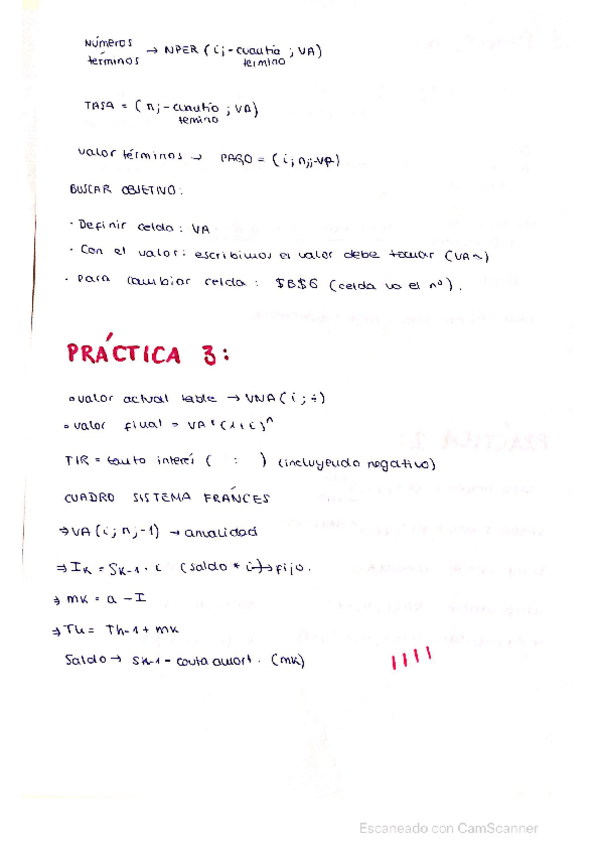 Números
términos → NPER (i;-cuantía ; VA)
término
TASA = (n;-cuantía ; VA)
término
Valor términos → PAGO = (i; n;;-VF)
BUSCAR OBJETIVO:
· Definir celda: VA
· Con el valor: escribimos el valor debe tomar (VA~)
· Para cambiar celda: $B$6 (celda va el nº).
PRÁCTICA 3:
• valor actual table → VNA (i ; ÷)
• valor final = VA * (1+i)^n
TIR = tanto interés ( : ) (incluyendo negativo)
CUADRO SISTEMA FRANCES
⇒ VA (i; n;-1) → anualidad
⇒ IK = SK-1 · i (saldo * i) → fijo.
⇒ mK = a - I
⇒ Th = Th-1 + mK
Saldo → SK-1 - couta amort. (mK)
Escaneado con CamScanner